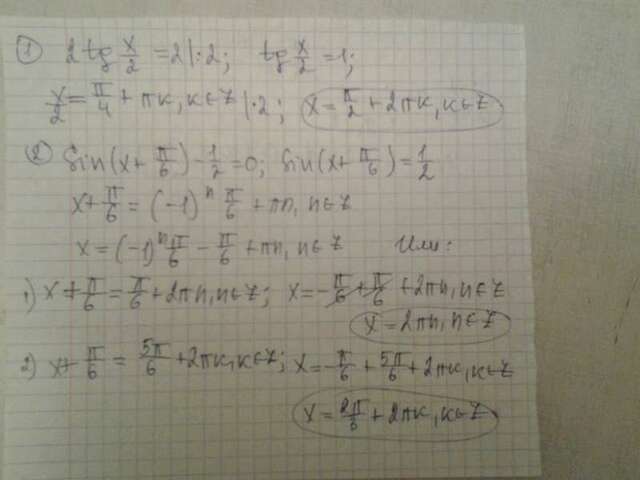 ① 2 tg x/2 = 2 |:2; tg x/2 = 1;
x/2 = π/4 + πк, к∈Z |·2; x = π/2 + 2πк, к∈Z
② sin(x + π/6) - 1/2 = 0; sin(x + π/6) = 1/2
x + π/6 = (-1)ⁿ π/6 + πn, n∈Z
x = (-1)ⁿ π/6 - π/6 + πn, n∈Z Или:
1) x + π/6 = π/6 + 2πn, n∈Z; x = -π/6 + π/6 + 2πn, n∈Z
x = 2πn, n∈Z
2) x + π/6 = 5π/6 + 2πк, к∈Z; x = -π/6 + 5π/6 + 2πк, к∈Z
x = 2π/3 + 2πк, к∈Z